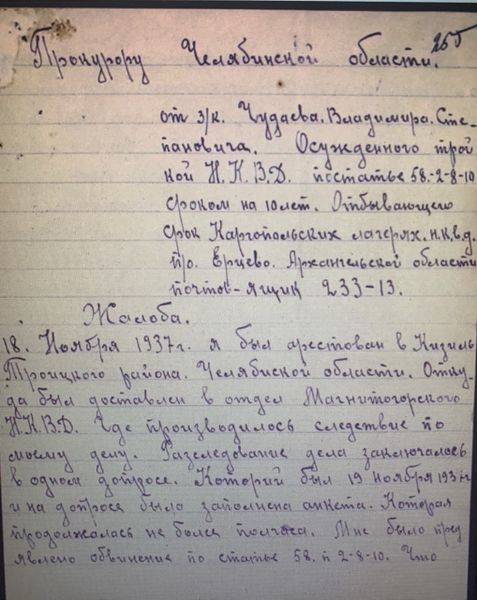 255
Прокурору Челябинской области.
от з/к. Чудаева. Владимира. Сте-
пановича. Осужденного трой
кой Н.К.В.Д. по статье 58.-2-8-10
сроком на 10 лет. Отбывающего
срок Каргопольских лагерях. н.к.в.д.
п/о. Ерцево. Архангельской области
почтов-ящик 233-13.
Жалоба.
18. Ноября 1937 г. я был арестован в Кизиль
Троицкого района. Челябиской области. Отку-
да был доставлен в отдел Магнитогорского
Н.К.В.Д. Где производилось следствие по
моему делу. Разследование дела заключалось
в одном допросе. Который был 19 ноября 1937 г
и на допросе была заполнена анкета. Которая
продолжалась не более полчаса. Мне было пред
явлено обвинение по статье 58. п 2-8-10. Что